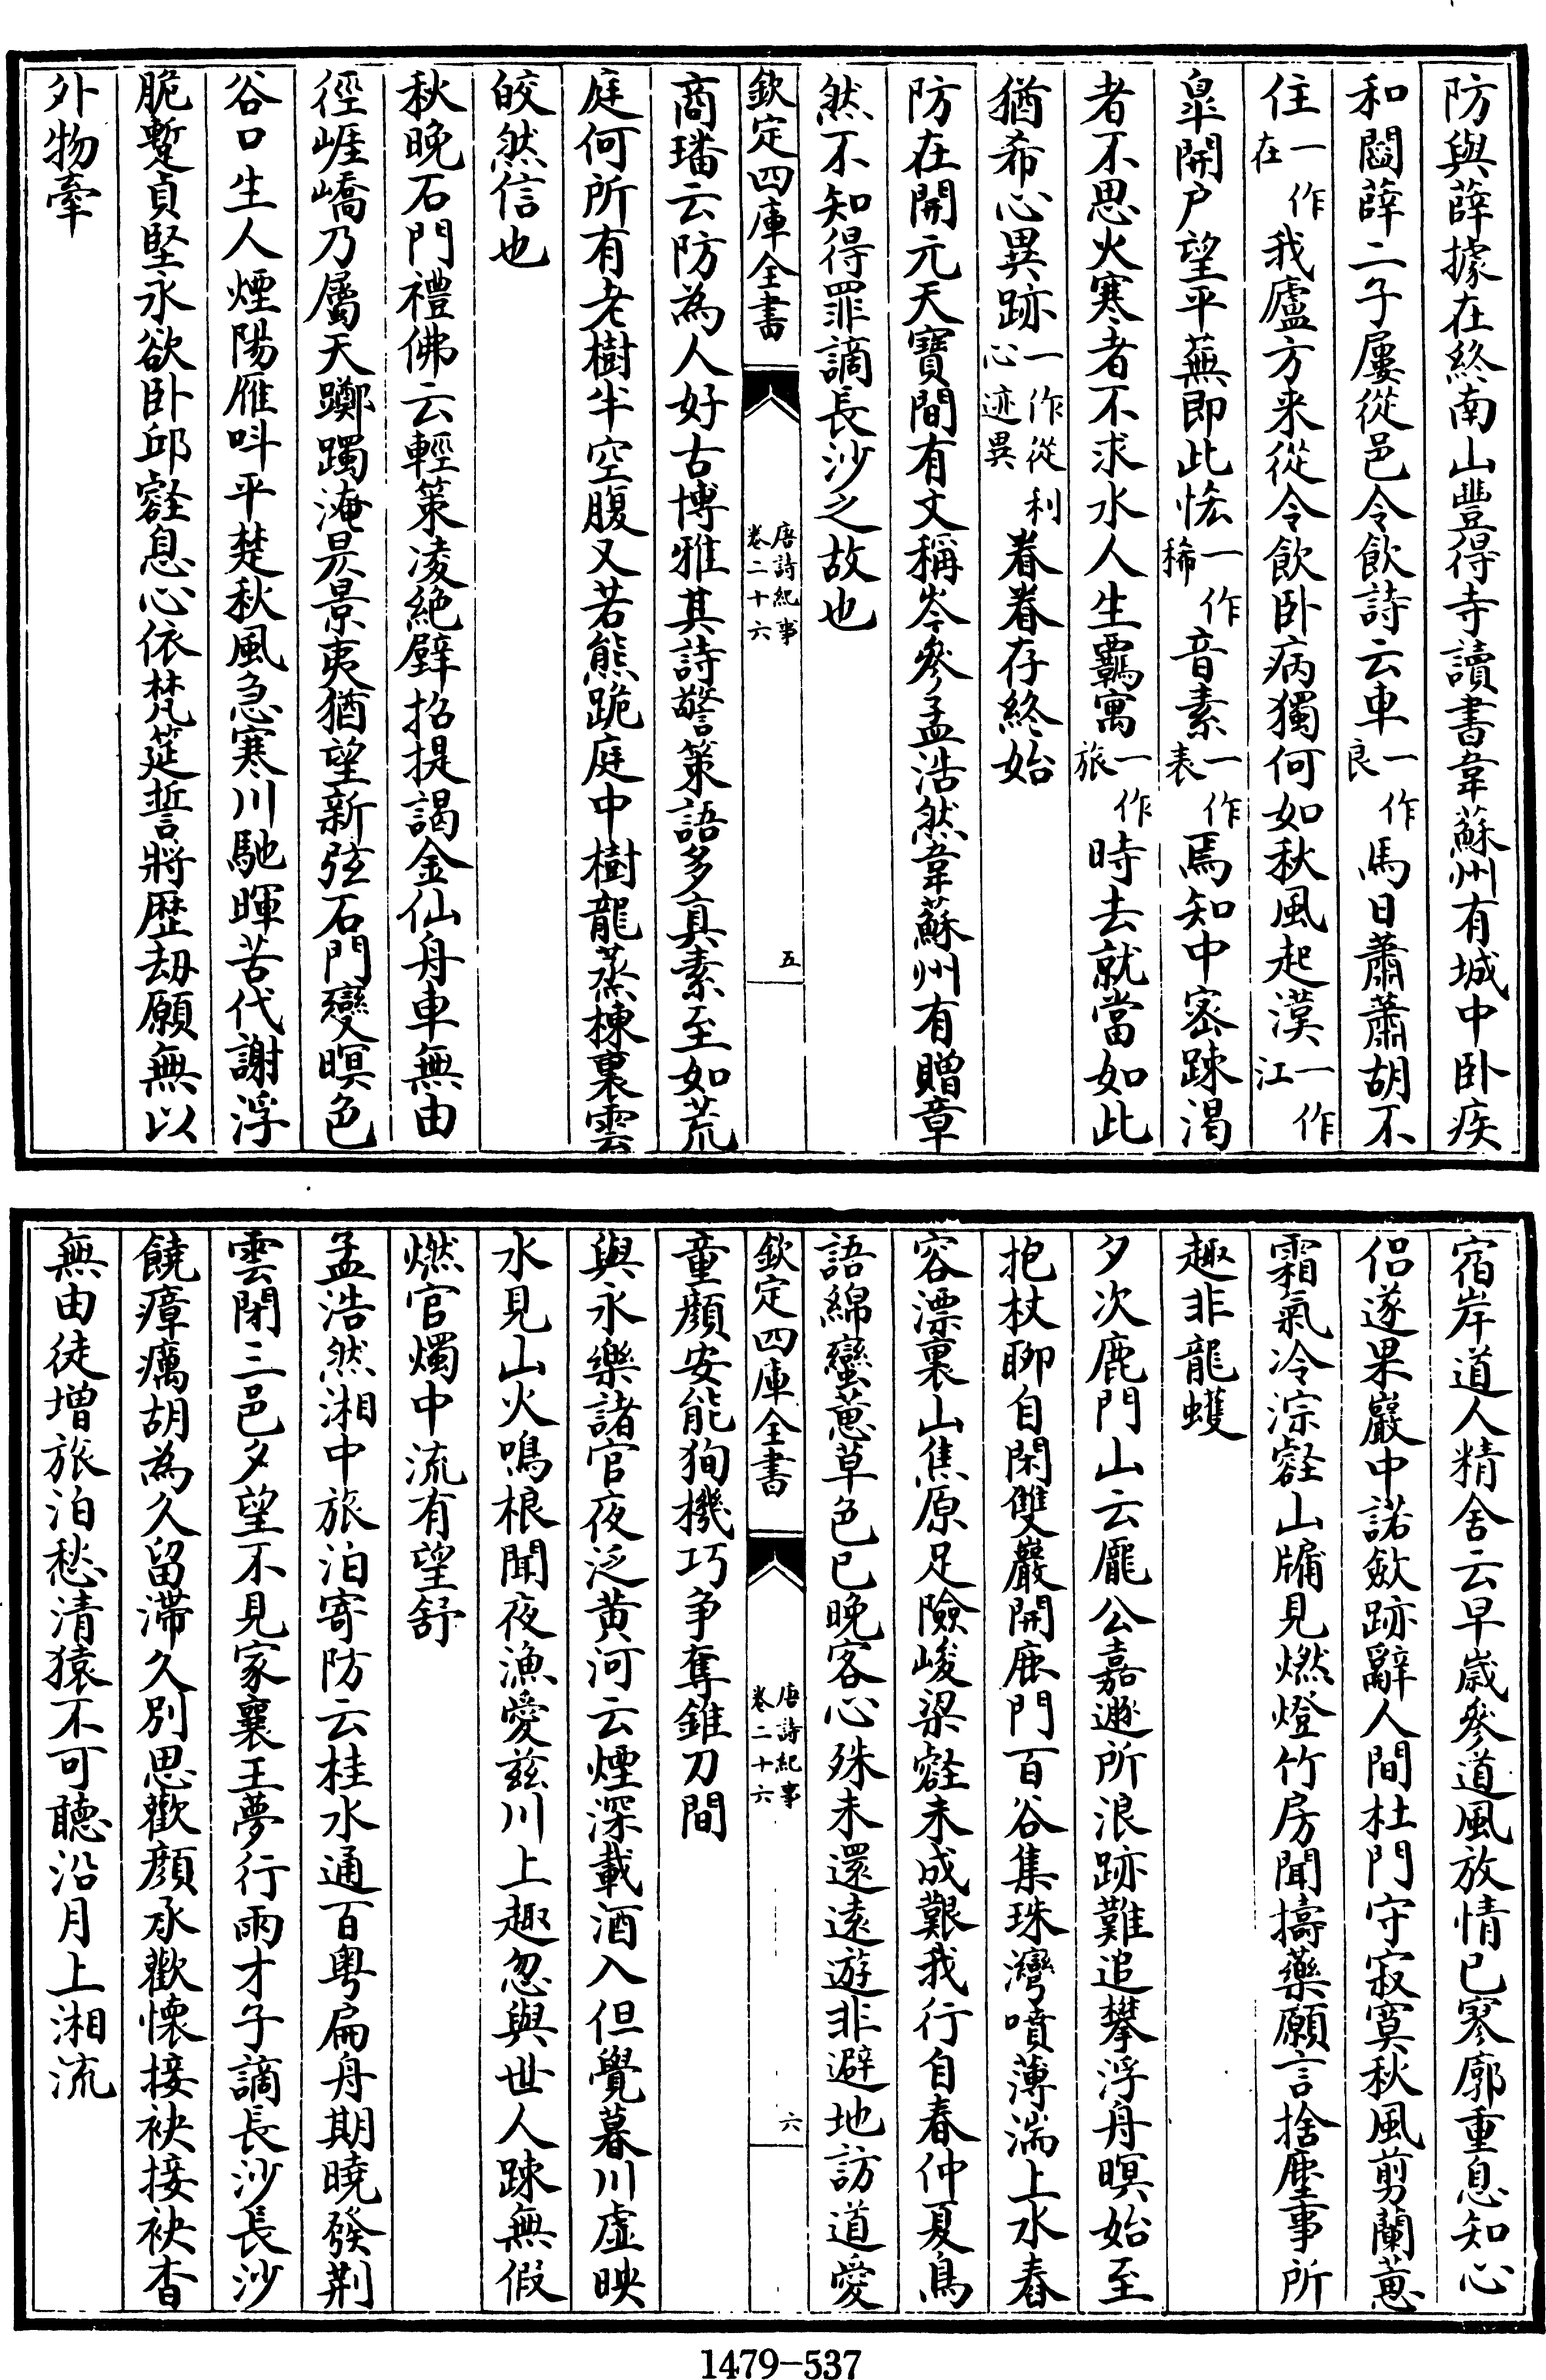 防與薛據在終南山豐得寺讀書韋蘇州有城中卧疾
和閻薛二子屢從邑令飲詩云車一作良馬日蕭蕭胡不
住一作在我廬方来從令飲卧病獨何如秋風起漢一作江
臯開戶望平蕪即此恡一作稀音素一作表焉知中密踈渴
者不思火寒者不求水人生羈寓一作旅時去就當如此
猶希心異跡一作從心迹異利眷眷存終始
防在開元天寶間有文稱岑參孟浩然韋蘇州有贈章
然不知得罪謫長沙之故也
欽定四庫全書
唐詩紀事
卷二十六
五
商璠云防為人好古博雅其詩警策語多真素至如荒
庭何所有老樹半空腹又若熊跪庭中樹龍蒸棟裏雲
皎然信也
秋晚石門禮佛云輕策凌絶壁招提謁金仙舟車無由
徑崕嶠乃屬天躑躅淹昃景夷猶望新弦石門變暝色
谷口生人煙陽雁呌平楚秋風急寒川馳暉苦代謝浮
脆慙貞堅永欲卧邱壑息心依梵筵誓將歴劫願無以
外物牽
宿岸道人精舍云早歲參道風放情已寥廓重息知心
侶遂果巖中諾斂跡辭人間杜門守寂寞秋風剪蘭蕙
霜氣冷淙壑山牖見燃燈竹房聞擣藥願言捨塵事所
趣非龍蠖
夕次鹿門山云龐公嘉遯所浪跡難追攀浮舟暝始至
抱杖聊自閑雙巖開鹿門百谷集珠灣噴薄湍上水舂
容漂裏山焦原足險峻梁壑未成艱我行自春仲夏鳥
語綿蠻蕙草色已晚客心殊未還遠遊非避地訪道愛
欽定四庫全書
唐詩紀事
卷二十六
六
童顏安能狥機巧争奪錐刀間
與永樂諸官夜泛黄河云煙深載酒入但覺暮川虛映
水見山火鳴桹聞夜漁愛兹川上趣忽與世人踈無假
燃官燭中流有望舒
孟浩然湘中旅泊寄防云桂水通百粤扁舟期曉發荆
雲閉三邑夕望不見家襄王夢行雨才子謫長沙長沙
饒瘴癘胡為久留滯久別思歡顏承歡懷接袂接袂杳
無由徒增旅泊愁清猿不可聽沿月上湘流
1479-537